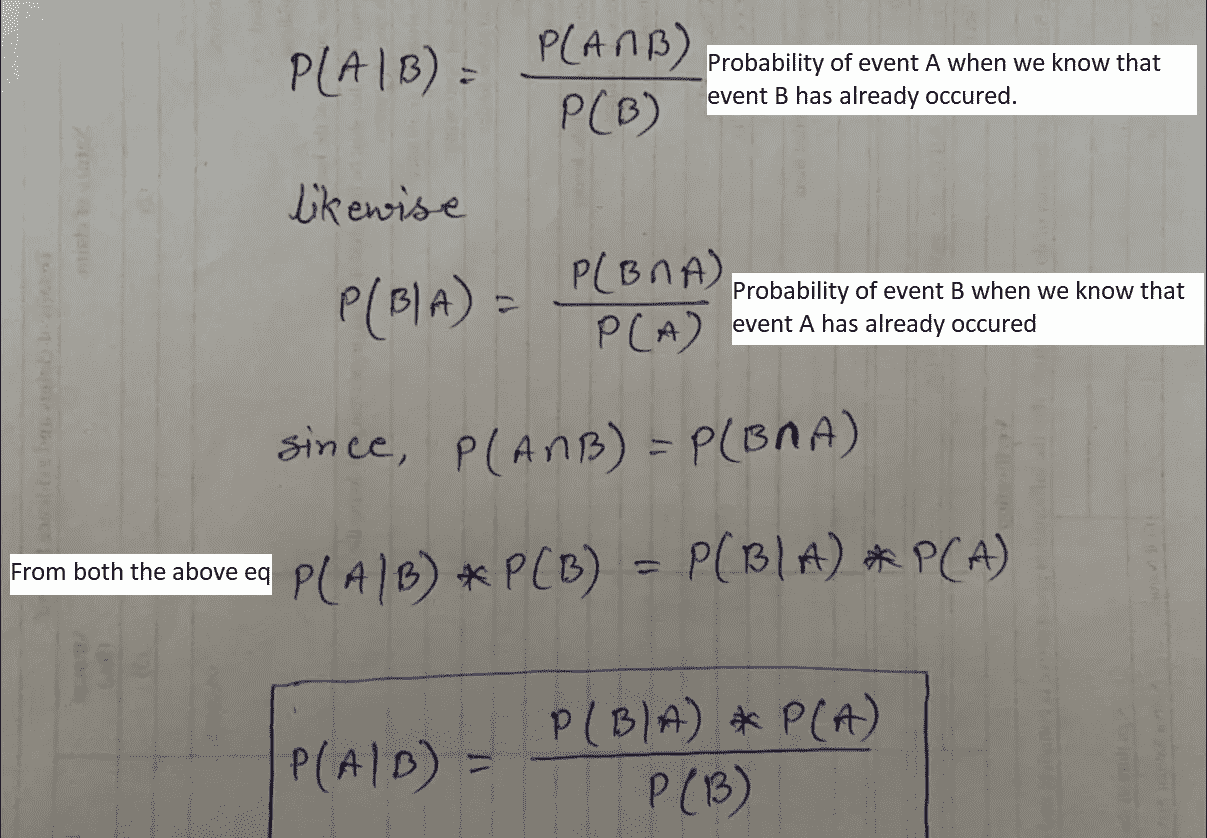 P(A|B) = P(A∩B) / P(B)
Probability of event A when we know that
event B has already occured.
likewise
P(B|A) = P(B∩A) / P(A)
Probability of event B when we know that
event A has already occured
since, P(A∩B) = P(B∩A)
From both the above eq P(A|B) * P(B) = P(B|A) * P(A)
P(A|B) = P(B|A) * P(A) / P(B)